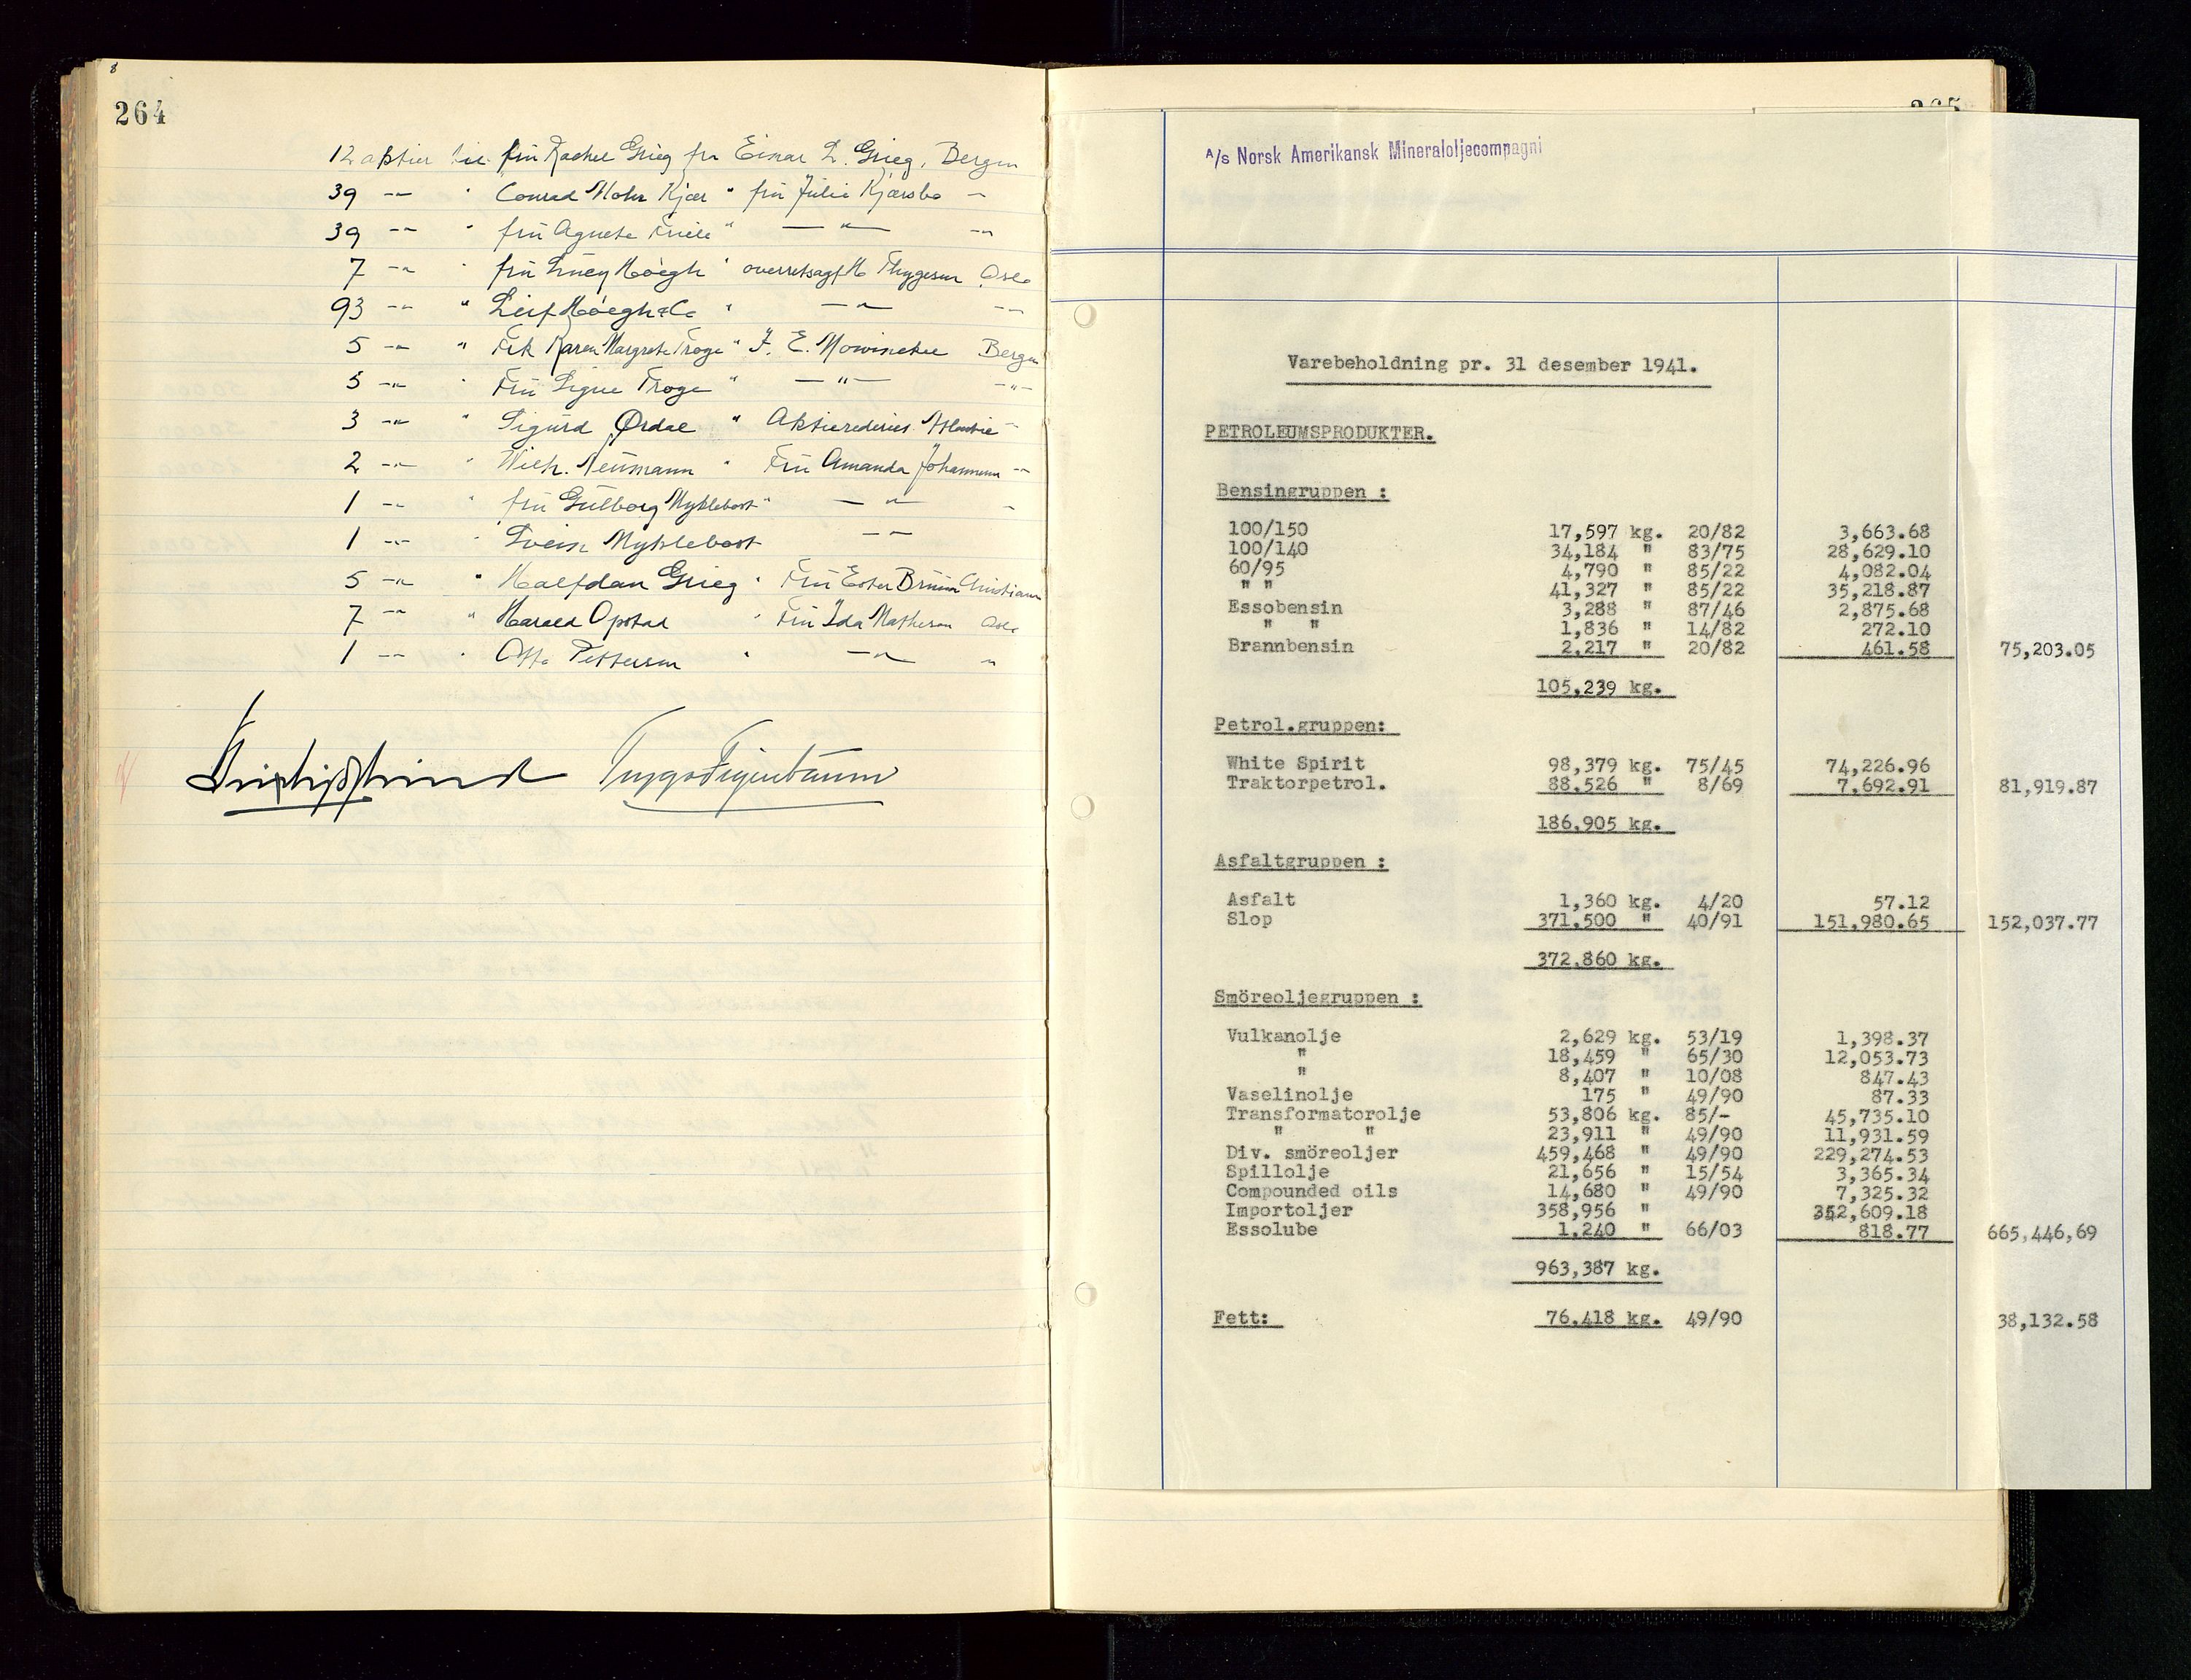 8
264
12 aktier til frü Rachel Grieg fra Einar L. Grieg, Bergen
39 -"- " Conrad Mohr Kjær " frü Julie Kjærsbo -"-
39 -"- " frü Agnete Friele " -"- -"-
7 -"- " frü Høegh " overretssagf. Thygesen Oslo
93 -"- " Leif Høegh & Co " -"- -"-
5 -"- " Frk Karen Margrete Troge " J. E. Mowinckel Bergen
5 -"- " Frü Signe Troge " -"- -"-
3 -"- " Sigurd Ørdal " Aktierederiet Atlantic -"-
2 -"- " Wilh. Neümann " Frü Amanda Johannesen -"-
1 -"- " frü Gülborg Myklebost " -"- "
1 -"- " Svein Myklebost -"-
5 -"- " Halfdan Grieg " Frü Ester Brüün Christiansen
7 -"- " Harald Opstad " Frü Ida Mathesen Oslo
1 -"- " Otto Pettersen " -"- "
265
A/s Norsk Amerikansk Mineraloljecompagni
Varebeholdning pr. 31 desember 1941.
PETROLEUMSPRODUKTER.
Bensingruppen :
100/150 17,597 kg. 20/82 3,663.68
100/140 34,184 " 83/75 28,629.10
60/95 4,790 " 85/22 4,082.04
" " 41,327 " 85/22 35,218.87
Essobensin 3,288 " 87/46 2,875.68
" " 1,836 " 14/82 272.10
Brannbensin 2,217 " 20/82 461.58 75,203.05
105,239 kg.
Petrol.gruppen:
White Spirit 98,379 kg. 75/45 74,226.96
Traktorpetrol. 88.526 " 8/69 7,692.91 81,919.87
186,905 kg.
Asfaltgruppen :
Asfalt 1,360 kg. 4/20 57.12
Slop 371,500 " 40/91 151,980.65 152,037.77
372,860 kg.
Smöreoljegruppen :
Vulkanolje 2,629 kg. 53/19 1,398.37
" 18,459 " 65/30 12,053.73
" 8,407 " 10/08 847.43
Vaselinolje 175 " 49/90 87.33
Transformatorolje 53,806 kg. 85/- 45,735.10
" " 23,911 " 49/90 11,931.59
Div. smöreoljer 459,468 " 49/90 229,274.53
Spillolje 21,656 " 15/54 3,365.34
Compounded oils 14,680 " 49/90 7,325.32
Importoljer 358,956 " 352,609.18
Essolube 1,240 " 66/03 818.77 665,446,69
963,387 kg.
Fett: 76.418 kg. 49/90 38,132.58